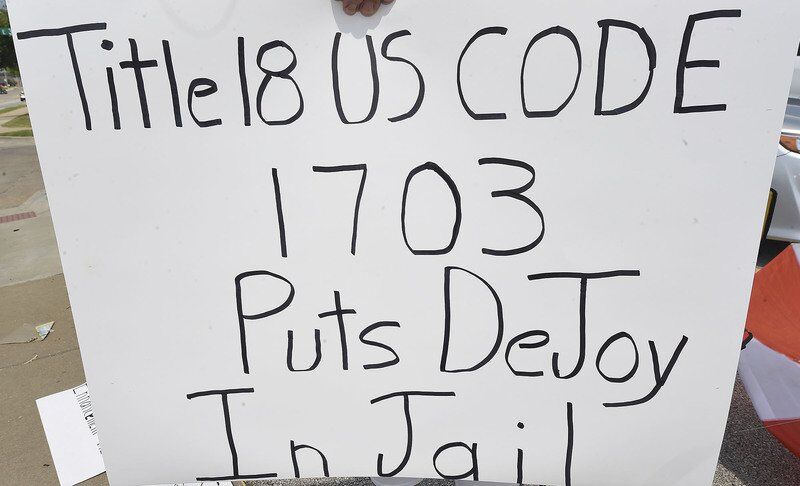 Title 18 US CODE
1703
Puts DeJoy
In Jail